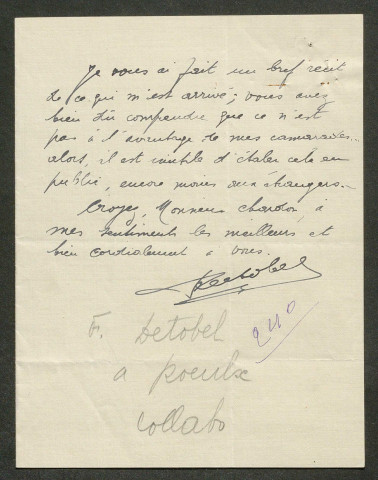 Je vous ai fait un bref récit
de ce qui m'est arrivé ; vous avez
bien dû comprendre que ce n'est
pas à l'avantage de mes camarades...
alors, il est inutile d'étaler cela en
public, encore moins aux étrangers.-
Croyez, Monsieur Chardon, à
mes sentiments les meilleurs et
bien cordialement à vous.
Detobel
F. Detobel
240
a Roeulx
Collabo